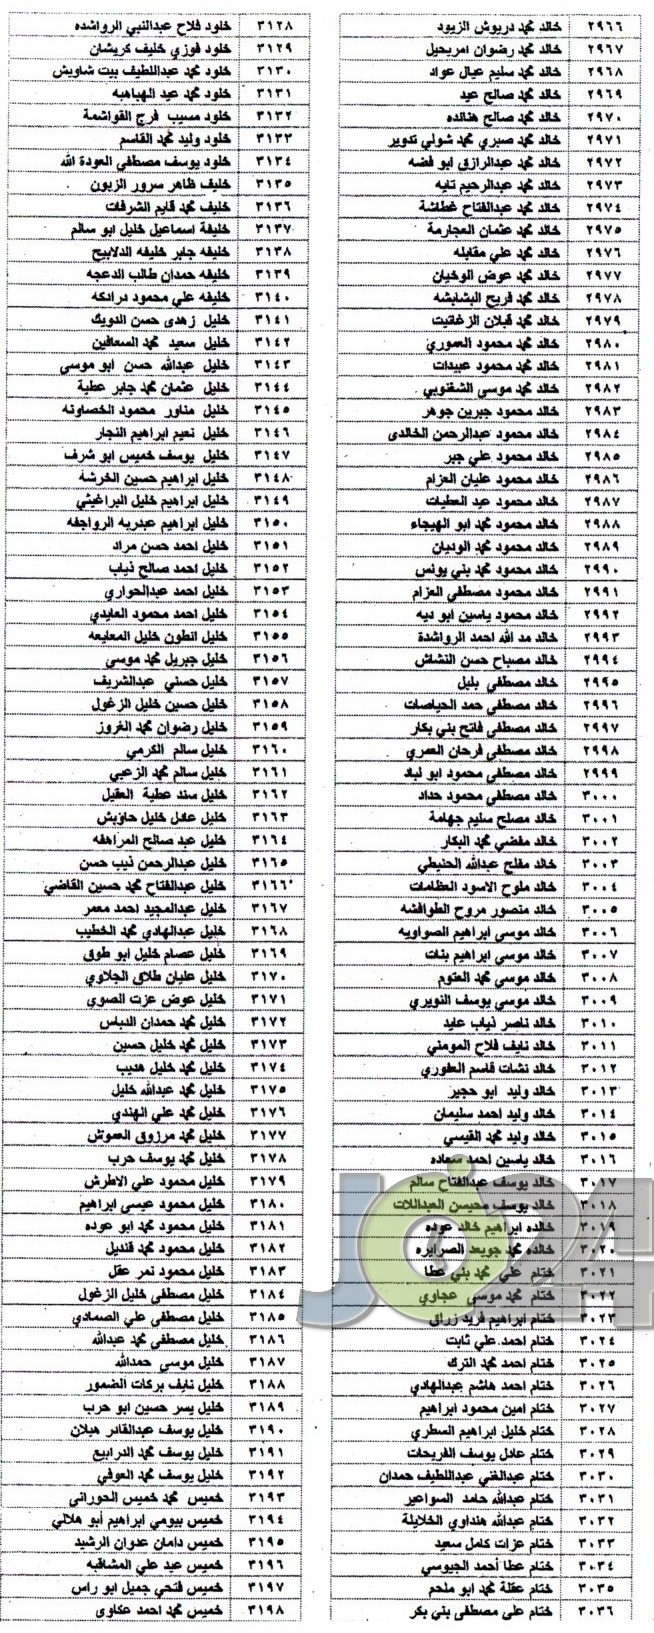 ٢٩٦٦ خالد محمد درويش الزيود
٢٩٦٧ خالد محمد رضوان امريحيل
٢٩٦٨ خالد محمد سليم عيال عواد
٢٩٦٩ خالد محمد صالح عيد
٢٩٧٠ خالد محمد صالح هنانده
٢٩٧١ خالد محمد صبري محمد شولي تدوير
٢٩٧٢ خالد محمد عبدالرازق ابو فضه
٢٩٧٣ خالد محمد عبدالرحيم تايه
٢٩٧٤ خالد محمد عبدالفتاح غطاشة
٢٩٧٥ خالد محمد عثمان العجارمة
٢٩٧٦ خالد محمد علي مقابله
٢٩٧٧ خالد محمد عوض الوخيان
٢٩٧٨ خالد محمد فريح البشابشه
٢٩٧٩ خالد محمد قبلان الزغاتيت
٢٩٨٠ خالد محمد محمود العموري
٢٩٨١ خالد محمد محمود عبيدات
٢٩٨٢ خالد محمد موسى الشغنوبي
٢٩٨٣ خالد محمود جبرين جوهر
٢٩٨٤ خالد محمود عبدالرحمن الخالدى
٢٩٨٥ خالد محمود علي جبر
٢٩٨٦ خالد محمود عليان العزام
٢٩٨٧ خالد محمود عيد العطيات
٢٩٨٨ خالد محمود محمد ابو الهيجاء
٢٩٨٩ خالد محمود محمد الوديان
٢٩٩٠ خالد محمود محمد بني يونس
٢٩٩١ خالد محمود مصطفي العزام
٢٩٩٢ خالد محمود ياسين ابو ديه
٢٩٩٣ خالد مد الله احمد الرواشدة
٢٩٩٤ خالد مصباح حسن النشاش
٢٩٩٥ خالد مصطفي بليل
٢٩٩٦ خالد مصطفى حمد الحياصات
٢٩٩٧ خالد مصطفى فاتح بني بكار
٢٩٩٨ خالد مصطفى فرحان العمري
٢٩٩٩ خالد مصطفى محمود ابو لباد
٣٠٠٠ خالد مصطفى محمود حداد
٣٠٠١ خالد مصلح سليم جهامة
٣٠٠٢ خالد مفضي محمد البكار
٣٠٠٣ خالد مفلح عبدالله الحنيطي
٣٠٠٤ خالد ملوح الاسود العظامات
٣٠٠٥ خالد منصور مروح الطوافشه
٣٠٠٦ خالد موسى ابراهيم الصواويه
٣٠٠٧ خالد موسى ابراهيم بنات
٣٠٠٨ خالد موسى محمد العتوم
٣٠٠٩ خالد موسى يوسف النويري
٣٠١٠ خالد ناصر نياب عايد
٣٠١١ خالد نايف فلاح المومني
٣٠١٢ خالد نشات قاسم العفوري
٣٠١٣ خالد وليد ابو حجير
٣٠١٤ خالد وليد احمد سليمان
٣٠١٥ خالد وليد محمد القيسي
٣٠١٦ خالد ياسين احمد سعاده
٣٠١٧ خالد يوسف عبدالفتاح سالم
٣٠١٨ خالد يوسف محيسن العبداللات
٣٠١٩ خالده ابراهيم خالد عوده
٣٠٢٠ خالده محمد جويعد الصرايره
٣٠٢١ ختام علي محمد بني عطا
٣٠٢٢ ختام محمد موسى عجاوي
٣٠٢٣ ختام ابراهيم فريد زراق
٣٠٢٤ ختام احمد علي ثابت
٣٠٢٥ ختام احمد محمد الترك
٣٠٢٦ ختام احمد هاشم عبدالهادي
٣٠٢٧ ختام امين محمود ابراهيم
٣٠٢٨ ختام خليل ابراهيم السطري
٣٠٢٩ ختام عادل يوسف الفريحات
٣٠٣٠ ختام عبدالغني عبداللطيف حمدان
٣٠٣١ ختام عبدالله حامد السواعير
٣٠٣٢ ختام عبدالله هنداوي الخلايلة
٣٠٣٣ ختام عزات كامل سعيد
٣٠٣٤ ختام عطا أحمد الجيوسي
٣٠٣٥ ختام عقلة محمد ابو ملحم
٣٠٣٦ ختام على مصطفى بني بكر
٣١٢٨ خلود فلاح عبدالنبي الرواشده
٣١٢٩ خلود فوزي خليف كريشان
٣١٣٠ خلود محمد عبداللطيف بيت شاويش
٣١٣١ خلود محمد عيد الهباهبه
٣١٣٢ خلود مسيب فرج القواشمة
٣١٣٣ خلود وليد محمد القاسم
٣١٣٤ خلود يوسف مصطفي العودة الله
٣١٣٥ خليف ظاهر سرور الزبون
٣١٣٦ خليف محمد قايم الشرفات
٣١٣٧ خليفة اسماعيل خليل ابو سالم
٣١٣٨ خليفه جابر خليفه الدلابيح
٣١٣٩ خليفه حمدان طالب الدعجه
٣١٤٠ خليفه علي محمود درادكه
٣١٤١ خليل زهدى حسن الدويك
٣١٤٢ خليل سعيد محمد السعافين
٣١٤٣ خليل عبدالله حسن ابو موسى
٣١٤٤ خليل عثمان محمد جابر عطية
٣١٤٥ خليل مناور محمود الخصاونه
٣١٤٦ خليل نعيم ابراهيم النجار
٣١٤٧ خليل يوسف خميس ابو شرف
٣١٤٨ خليل ابراهيم حسين الخرشه
٣١٤٩ خليل ابراهيم خليل البراغيثي
٣١٥٠ خليل ابراهيم عبدربه الرواجفه
٣١٥١ خليل احمد حسن مراد
٣١٥٢ خليل احمد صالح نياب
٣١٥٣ خليل احمد عبدالحواري
٣١٥٤ خليل احمد محمود العابدي
٣١٥٥ خليل انطون خليل المعايعه
٣١٥٦ خليل جبريل محمد موسي
٣١٥٧ خليل حسني عبدالشريف
٣١٥٨ خليل حسين خليل الزغول
٣١٥٩ خليل رضوان محمد الغروز
٣١٦٠ خليل سالم الكرمي
٣١٦١ خليل سالم محمد الزعبي
٣١٦٢ خليل سند عطية العقيل
٣١٦٣ خليل عادل خليل حاويش
٣١٦٤ خليل عبد صالح المراهفه
٣١٦٥ خليل عبدالرحمن نيب حسن
٣١٦٦ خليل عبدالفتاح محمد حسين القاضي
٣١٦٧ خليل عبدالمجيد احمد معمر
٣١٦٨ خليل عبدالهادي محمد الخطيب
٣١٦٩ خليل عصام خليل ابو طوق
٣١٧٠ خليل عليان طلاق الجلاوي
٣١٧١ خليل عوض عزت الصوي
٣١٧٢ خليل محمد حمدان الدباس
٣١٧٣ خليل محمد خليل حسين
٣١٧٤ خليل محمد خليل هديب
٣١٧٥ خليل محمد عبدالله خليل
٣١٧٦ خليل محمد علي الهندي
٣١٧٧ خليل محمد مرزوق العموش
٣١٧٨ خليل محمد يوسف حرب
٣١٧٩ خليل محمود علي الاطرش
٣١٨٠ خليل محمود عيسى ابراهيم
٣١٨١ خليل محمود محمد ابو عوده
٣١٨٢ خليل محمود محمد قنديل
٣١٨٣ خليل محمود نمر عقل
٣١٨٤ خليل مصطفى خليل الزغول
٣١٨٥ خليل مصطفى علي الصمادي
٣١٨٦ خليل مصطفى محمد عبدالله
٣١٨٧ خليل موسى حمدالله
٣١٨٨ خليل نايف بركات الضمور
٣١٨٩ خليل يسر حسين ابو حرب
٣١٩٠ خليل يوسف عبدالقادر هبلان
٣١٩١ خليل يوسف محمد الدرابيع
٣١٩٢ خليل يوسف محمد العوفي
٣١٩٣ خميس محمد خميس الحورانى
٣١٩٤ خميس بيومي ابراهيم أبو هلالي
٣١٩٥ خميس دامان عدوان الرشيد
٣١٩٦ خميس عيد علي المشاقبه
٣١٩٧ خميس فتحي جميل ابو راس
٣١٩٨ خميس محمد احمد عكاوى
JO24